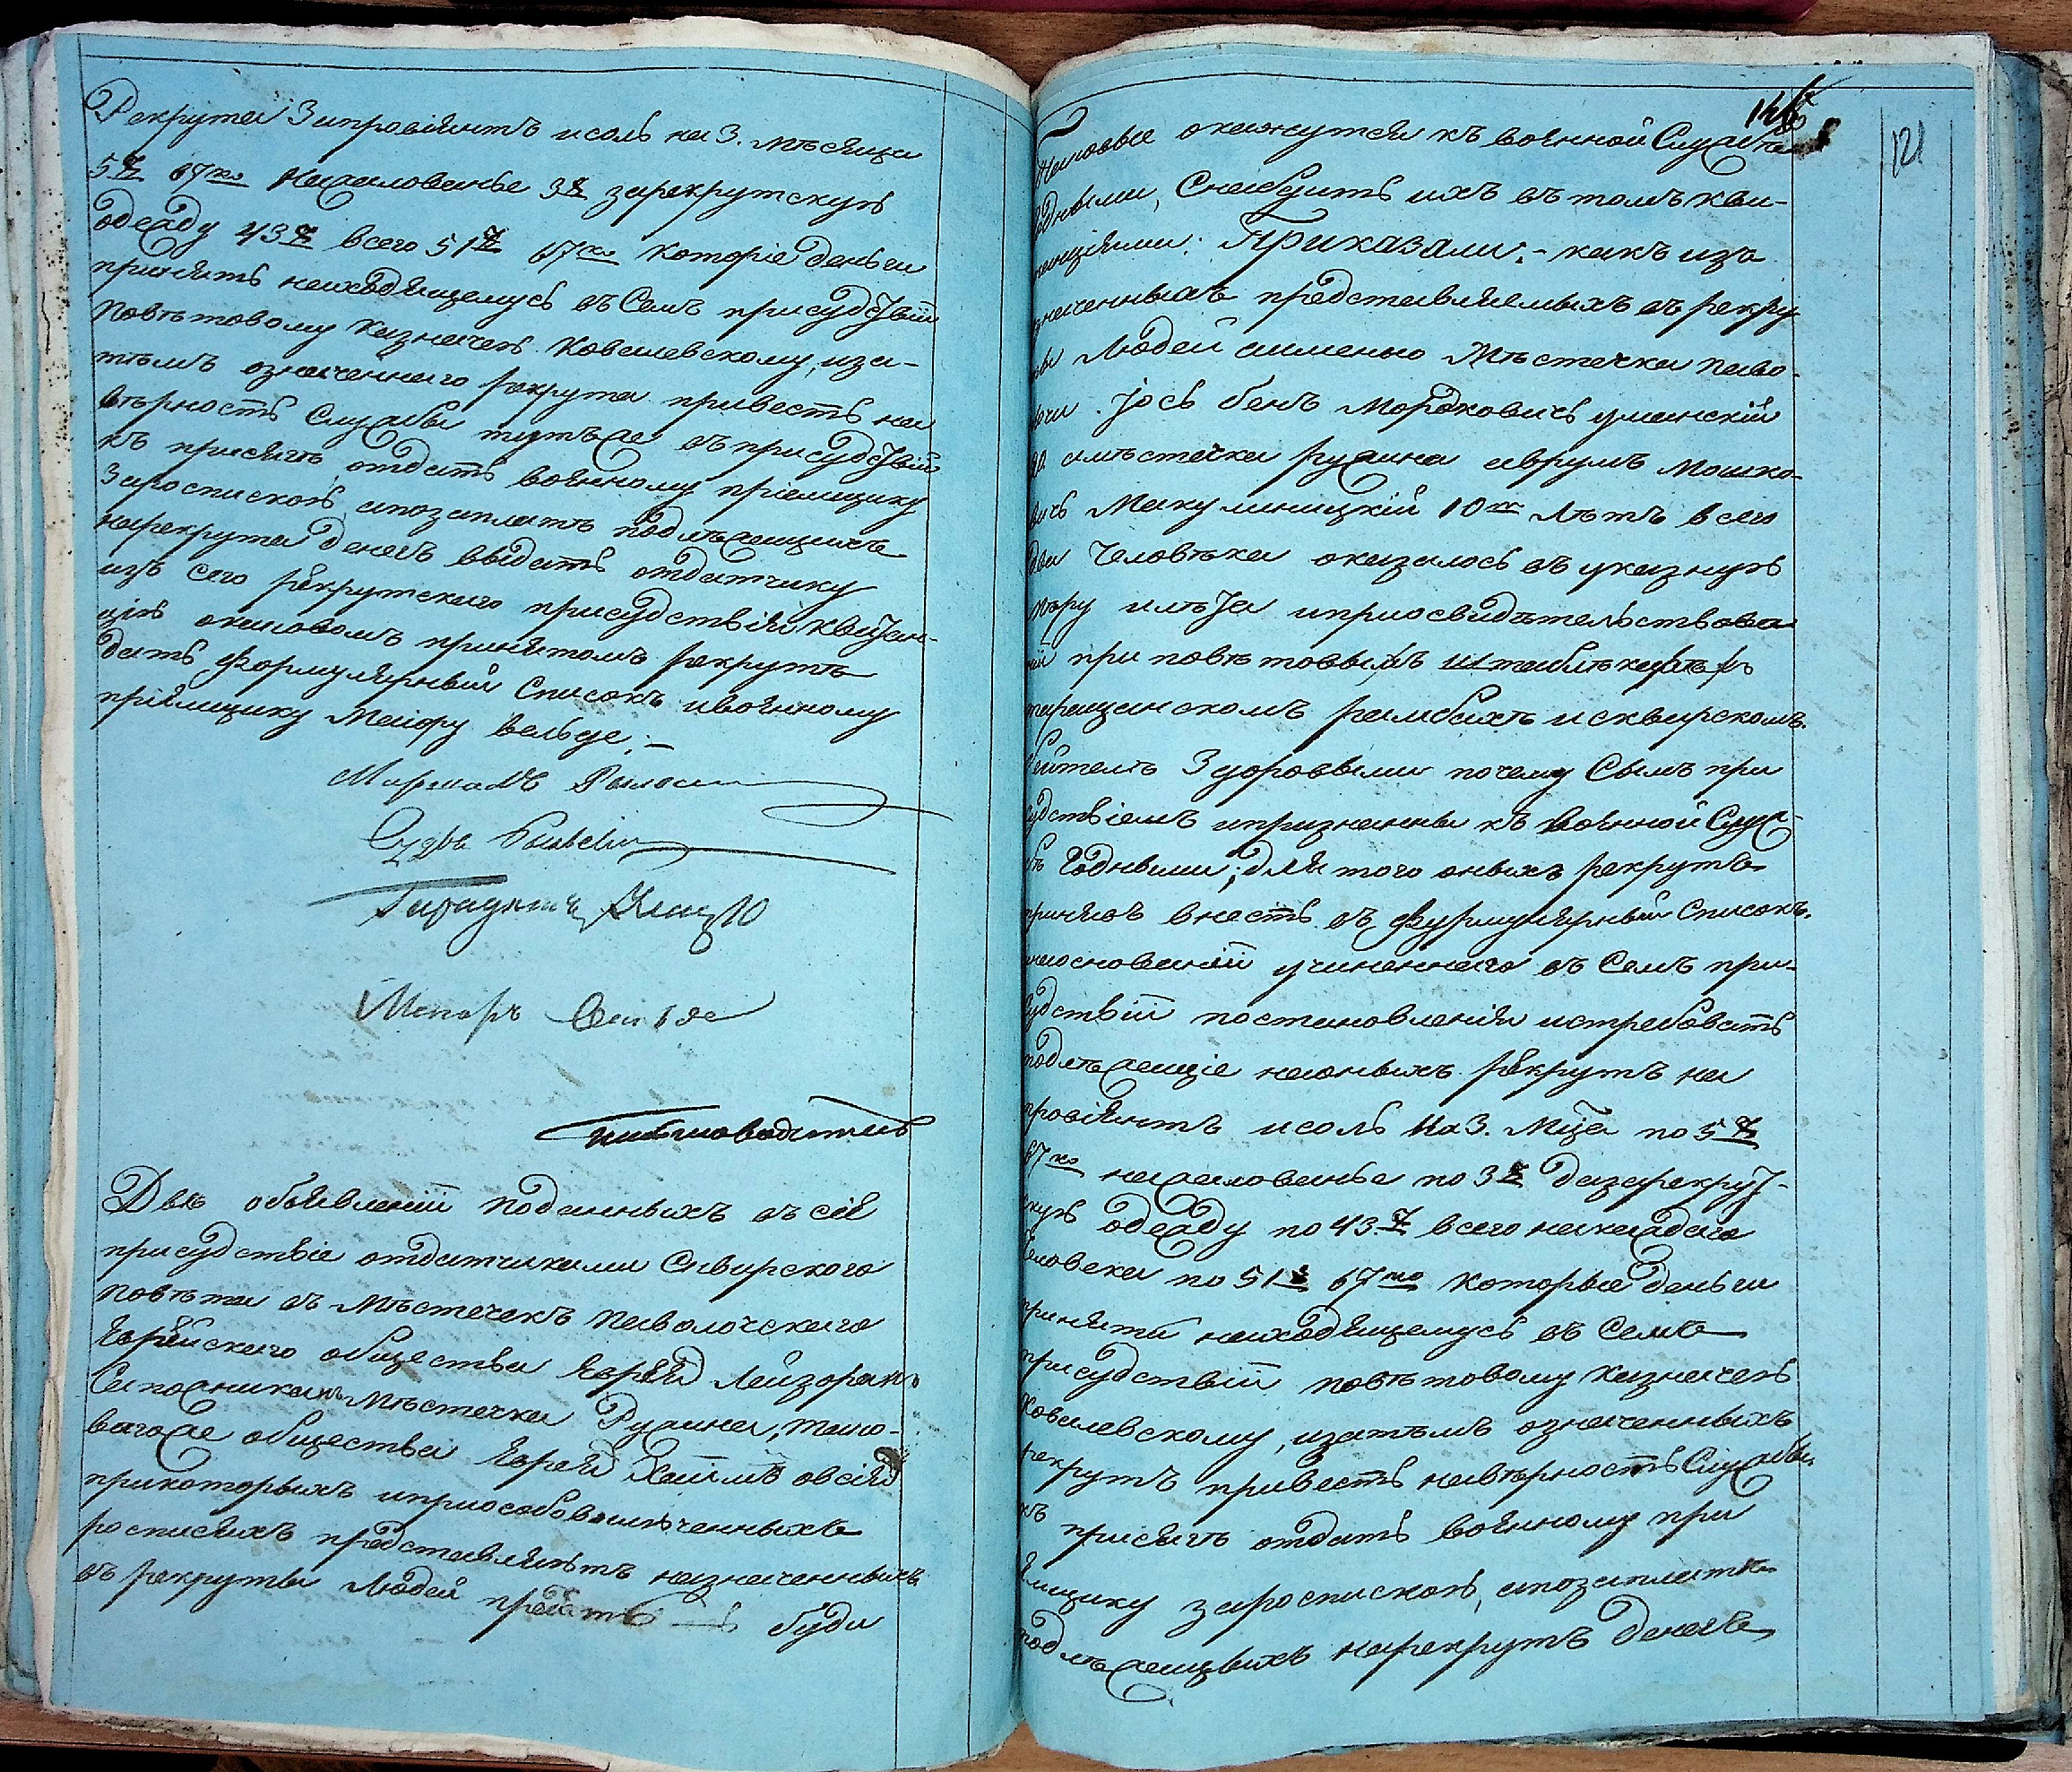 Рекрута За провіянтъ и соль на 3. мѣсяца
5 67 ко на жалованье 3 за рекрутскую
одежду 43 всего 51 67 ко которіе деньги
принять находящемусь въ семъ присудствіи
повѣтовому казначею Ковалевскому, иза-
тѣмъ означеннаго рекрута привесть на
вѣрность службы тутъ же въ присудствіи
къ присягѣ отдать военному пріемщику
за роспискою, а по заплатѣ подлѣжащихъ
на рекрута денегъ выдать отдатчику
изъ сего рекрутского присудствія квитан-
цію о каковомъ принятомъ рекрутѣ
дать формулярный списокъ и военному
пріемщику Маіору Вельде; —
Маршалъ
Судья
Маіоръ Вельде
Двѣ объявленіи поданныхъ въ сіе
присудствіе отдатчиками Сквирского
повѣта въ мѣстечекъ Паволочского
Еврейского общества еврей Лейзоромъ
Сапожникомъ мѣстечка Ружина, тако-
вагоже общества Еврей Хаимъ Овсій
при которыхъ и при особо
росписяхъ представляютъ назначенныхъ
въ рекруты людей буди
146
121
таковые окажутся къ военной службѣ
годными, снабдить ихъ въ томъ кви-
танціями. Приказали:- какъ изъ
значенныхъ представляемыхъ въ рекру
ты людей а именно Мѣстечка Паво-
лочи Іось бенъ Мордковичъ уманскій
да и мѣстечка Ружина Аврумъ Мошко-
вичъ Макулиницкій 10 лѣтъ всего
два человѣка оказалось въ указную
мѣру имѣя и при освидѣтельствова
ніи при повѣтовымъ штаблѣкарѣ
таращанскомъ и сквирскомъ
здоровыми почему симъ при
судствіемъ и признанны къ военной служ-
бѣ годными; для того оныхъ рекрутъ
принявъ внесть въ формулярный списокъ,
на основаніи учиненнаго въ семъ при-
судствіи постановленія истребовать
подлѣжащіе на оныхъ рекрутъ на
провіянтъ и соль на 3. мца по 5
67 ко на жалованье по 3 да за рекрут-
скую одежду по 43. всего на каждого
человека по 51 67 ко которые деньги
принять находящемусь въ семъ
присудствіи повѣтовому казначею
Ковалевскому, изатѣмъ означенныхъ
рекрутъ привесть на вѣрность службы
къ присягѣ отдать военному при
емщику за роспискою, а по заплатѣ
подлѣжащихъ на рекрутъ денегъ